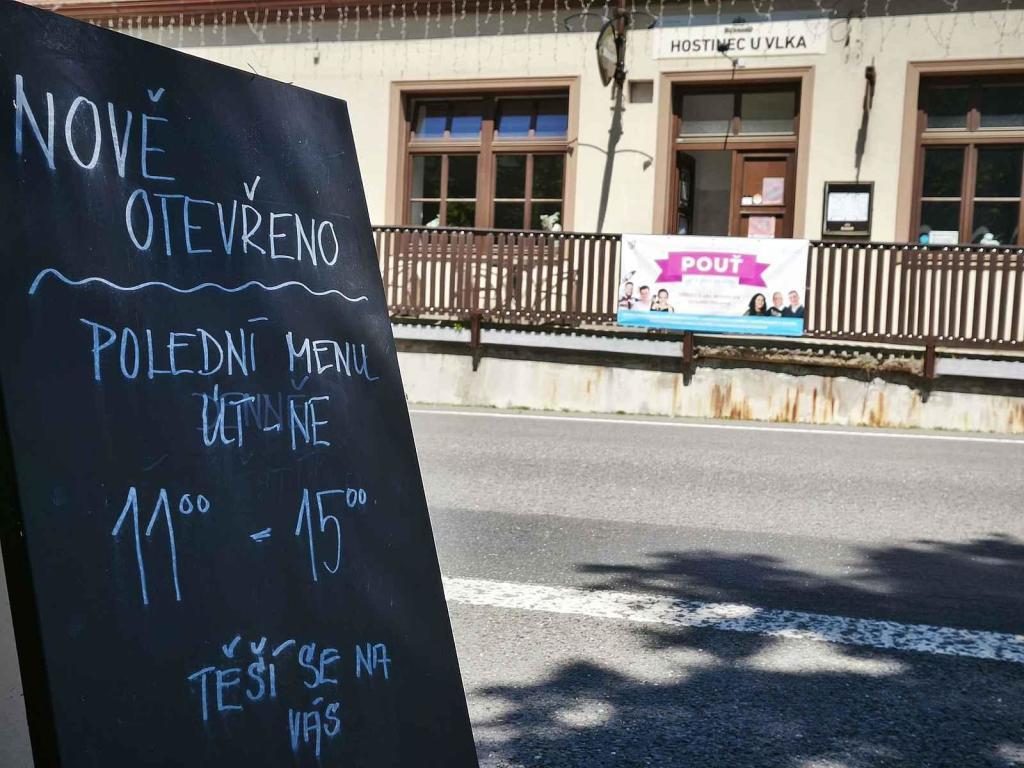 NOVĚ
OTEVŘENO
POLEDNÍ MENU
1100 - 1500
TĚŠÍ SE NA
VÁS
HOSTINEC U VLKA
POUŤ